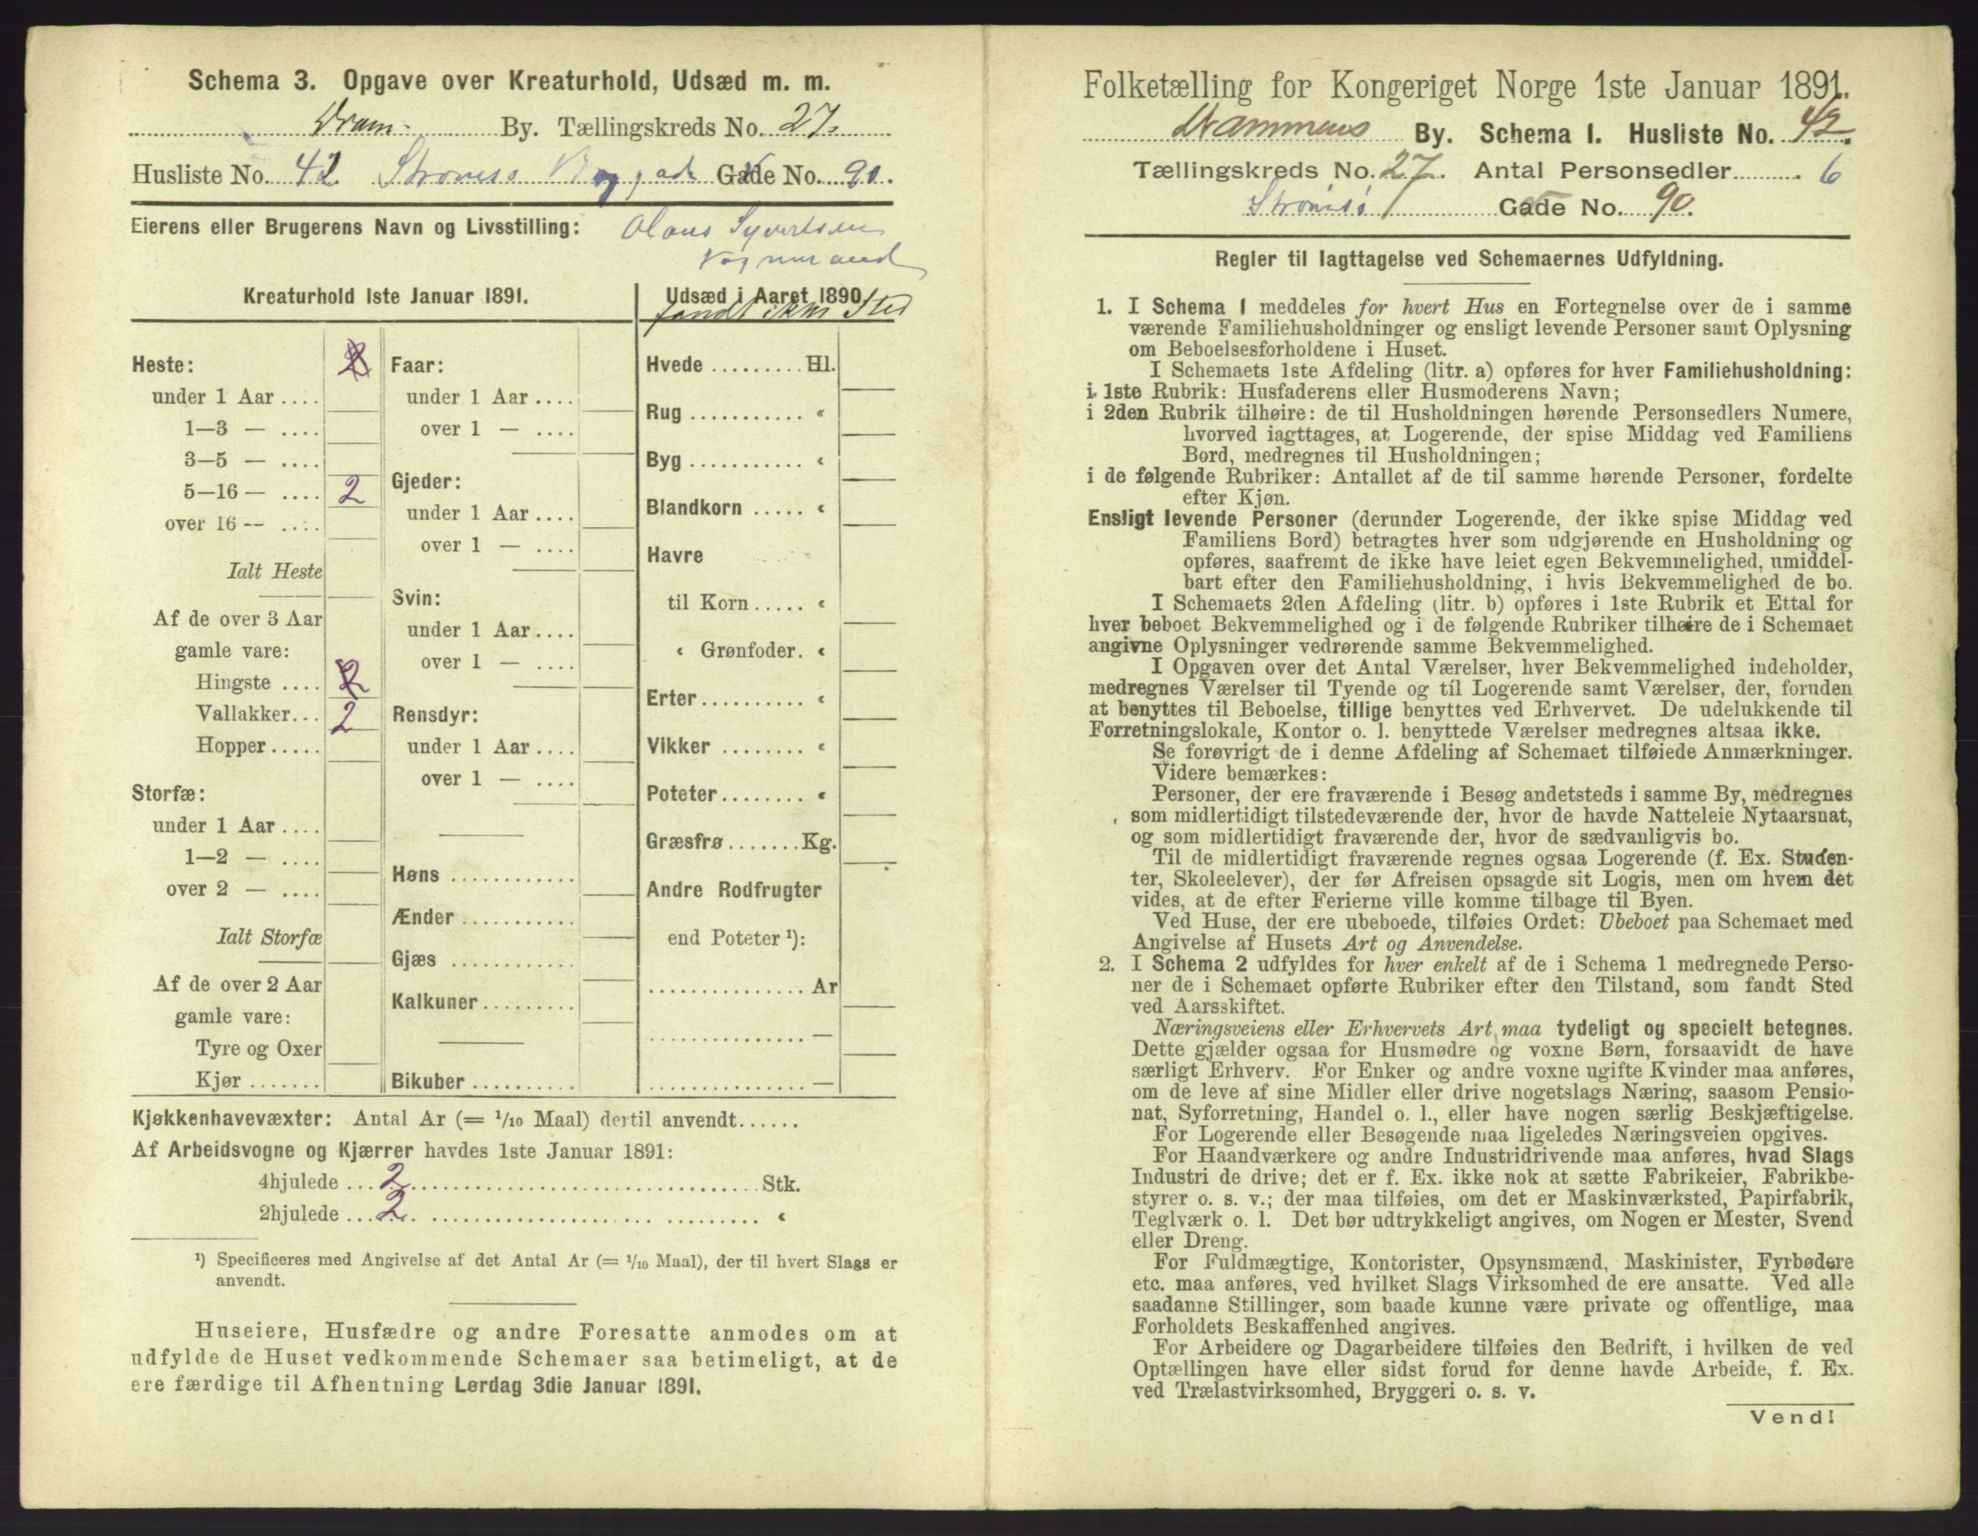 Schema 3. Opgave over Kreaturhold, Udsæd m. m.
Dram- By. Tællingskreds No. 27.
Husliste No. 42 Strømsø Gade No. 90.
Eierens eller Brugerens Navn og Livsstilling: Olaus Syvertsen
Vognmand
Kreaturhold 1ste Januar 1891.
Heste:
under 1 Aar ....
1—3 — ....
3—5 — ....
5—16 — .... 2
over 16 — ....
Ialt Heste
Af de over 3 Aar
gamle vare:
Hingste .... 2
Vallakker... 2
Hopper.....
Storfæ:
under 1 Aar ....
1—2 — ....
over 2 — ....
Ialt Storfæ
Af de over 2 Aar
gamle vare:
Tyre og Oxer
Kjør .......
Faar:
under 1 Aar ....
over 1 — ....
Gjeder:
under 1 Aar ....
over 1 — ....
Svin:
under 1 Aar ....
over 1 — ....
Rensdyr:
under 1 Aar ....
over 1 — ....
Høns ............
Ænder ...........
Gjæs ............
Kalkuner.........
Bikuber ..........
Udsæd i Aaret 1890
fandt ikke Sted
Hvede ......... Hl.
Rug ........... «
Byg ........... «
Blandkorn ..... «
Havre
til Korn ..... «
« Grønfoder. «
Erter.......... «
Vikker ........ «
Poteter........ «
Græsfrø ....... Kg.
Andre Rodfrugter
end Poteter ¹):
............... Ar
............... —
............... —
Kjøkkenhavevæxter: Antal Ar (= 1/10 Maal) dertil anvendt......
Af Arbeidsvogne og Kjærrer havdes 1ste Januar 1891:
4hjulede ... 2 ........ Stk.
2hjulede ... 2 ........ «
¹) Specificeres med Angivelse af det Antal Ar (= 1/10 Maal), der til hvert Slags er
anvendt.
Huseiere, Husfædre og andre Foresatte anmodes om at
udfylde de Huset vedkommende Schemaer saa betimeligt, at de
ere færdige til Afhentning Lørdag 3die Januar 1891.
Folketælling for Kongeriget Norge 1ste Januar 1891.
Drammens By. Schema I. Husliste No. 42.
Tællingskreds No. 27. Antal Personsedler .......... 6
Strømsø Gade No. 90.
Regler til Iagttagelse ved Schemaernes Udfyldning.
1. I Schema 1 meddeles for hvert Hus en Fortegnelse over de i samme
værende Familiehusholdninger og ensligt levende Personer samt Oplysning
om Beboelsesforholdene i Huset.
I Schemaets 1ste Afdeling (litr. a) opføres for hver Familiehusholdning:
i 1ste Rubrik: Husfaderens eller Husmoderens Navn;
i 2den Rubrik tilhøire: de til Husholdningen hørende Personsedlers Numere,
hvorved iagttages, at Logerende, der spise Middag ved Familiens
Bord, medregnes til Husholdningen;
i de følgende Rubriker: Antallet af de til samme hørende Personer, fordelte
efter Kjøn.
Ensligt levende Personer (derunder Logerende, der ikke spise Middag ved
Familiens Bord) betragtes hver som udgjørende en Husholdning og
opføres, saafremt de ikke have leiet egen Bekvemmelighed, umiddel-
bart efter den Familiehusholdning, i hvis Bekvemmelighed de bo.
I Schemaets 2den Afdeling (litr. b) opføres i 1ste Rubrik et Ettal for
hver beboet Bekvemmelighed og i de følgende Rubriker tilhøire de i Schemaet
angivne Oplysninger vedrørende samme Bekvemmelighed.
I Opgaven over det Antal Værelser, hver Bekvemmelighed indeholder,
medregnes Værelser til Tyende og til Logerende samt Værelser, der, foruden
at benyttes til Beboelse, tillige benyttes ved Erhvervet. De udelukkende til
Forretningslokale, Kontor o. l. benyttede Værelser medregnes altsaa ikke.
Se forøvrigt de i denne Afdeling af Schemaet tilføiede Anmærkninger.
Videre bemærkes:
Personer, der ere fraværende i Besøg andetsteds i samme By, medregnes
som midlertidigt tilstedeværende der, hvor de havde Natteleie Nytaarsnat,
og som midlertidigt fraværende der, hvor de sædvanligvis bo.
Til de midlertidigt fraværende regnes ogsaa Logerende (f. Ex. Studen-
ter, Skoleelever), der før Afreisen opsagde sit Logis, men om hvem det
vides, at de efter Ferierne ville komme tilbage til Byen.
Ved Huse, der ere ubeboede, tilføies Ordet: Ubeboet paa Schemaet med
Angivelse af Husets Art og Anvendelse.
2. I Schema 2 udfyldes for hver enkelt af de i Schema 1 medregnede Perso-
ner de i Schemaet opførte Rubriker efter den Tilstand, som fandt Sted
ved Aarsskiftet.
Næringsveiens eller Erhvervets Art maa tydeligt og specielt betegnes.
Dette gjælder ogsaa for Husmødre og voxne Børn, forsaavidt de have
særligt Erhverv. For Enker og andre voxne ugifte Kvinder maa anføres,
om de leve af sine Midler eller drive nogetslags Næring, saasom Pensio-
nat, Syforretning, Handel o. l., eller have nogen særlig Beskjæftigelse.
For Logerende eller Besøgende maa ligeledes Næringsveien opgives.
For Haandværkere og andre Industridrivende maa anføres, hvad Slags
Industri de drive; det er f. Ex. ikke nok at sætte Fabrikeier, Fabrikbe-
styrer o. s. v.; der maa tilføies, om det er Maskinværksted, Papirfabrik,
Teglværk o. l. Det bør udtrykkeligt angives, om Nogen er Mester, Svend
eller Dreng.
For Fuldmægtige, Kontorister, Opsynsmænd, Maskinister, Fyrbødere
etc. maa anføres, ved hvilket Slags Virksomhed de ere ansatte. Ved alle
saadanne Stillinger, som baade kunne være private og offentlige, maa
Forholdets Beskaffenhed angives.
For Arbeidere og Dagarbeidere tilføies den Bedrift, i hvilken de ved
Optællingen have eller sidst forud for denne havde Arbeide, f. Ex.
ved Trælastvirksomhed, Bryggeri o. s. v.
Vend!